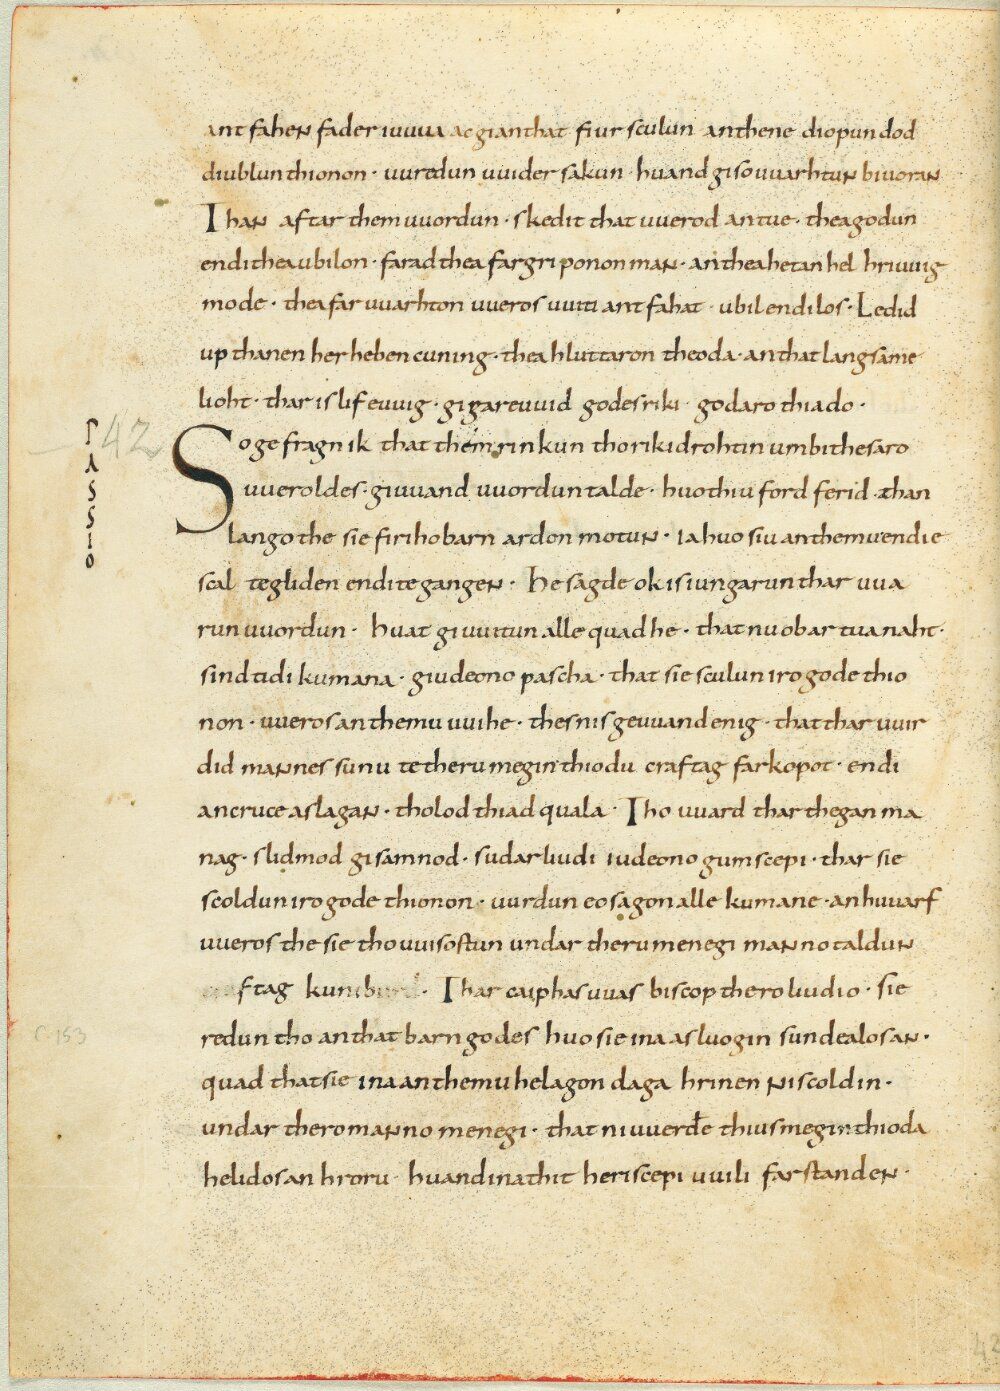 ant fahen fader iuuua ac gi an that fiur sculun an thene diopun dod
diublun thionon · uuredun uuider sakun · huand gi so uuarhtun biuoran
Than aftar them uuordun · skedit that uuerod an tue · thea godun
endi thea ubilon · farad thea fargriponon man · an thea hetan hel hriuuig
mode · thea faruuarhton uueros uuiti antfahat · ubil endilos · Ledid
up thanen her heben cuning · thea hluttaron theoda · an that langsame
lioht · thar is lif euuig · gigareuuid godes riki godaro thiado ·
PASSIO
42
So gefragn ik that them rinkun tho riki drohtin umbi thesaro
uueroldes · giuuand uuordun talde · huo thiu ford ferid · than
lango the sie firiho barn ardon motun · ia huo siu an themu endie
scal tegliden endi tegangen · he sagde ok is iungarun thar uua
run uuordun · huat gi uuitun alle quad he · that nu obar tua naht ·
sind tidi kumana · giudeono pascha · that sie sculun iro gode thio
non · uueros an themu uuihe · thes nis geuuand enig · that thar uuir
did mannes sunu te theru meginthiodu craftag farkopot · endi
an cruce aslagan · tholod thiad quala · Tho uuard thar thegan ma
nag · slidmod gisamnod · sudar liudi iudeono gumscepi · thar sie
scoldun iro gode thionon · uurdun eosagon alle kumane · an huuarf
uueros the sie tho uuisostun undar theru menegi manno taldun
ftag kuniburd · Thar caiphas uuas biscop thero liudio · sie
redun tho an that barn godes huo sie ina asluogin sundea losan ·
C. 153
quad that sie ina an themu helagon daga hrinen ni scoldin ·
undar thero manno menegi · that ni uuerđe thius meginthioda
helidos an hroru huand ina thit heriscepi uuili farstanden ·